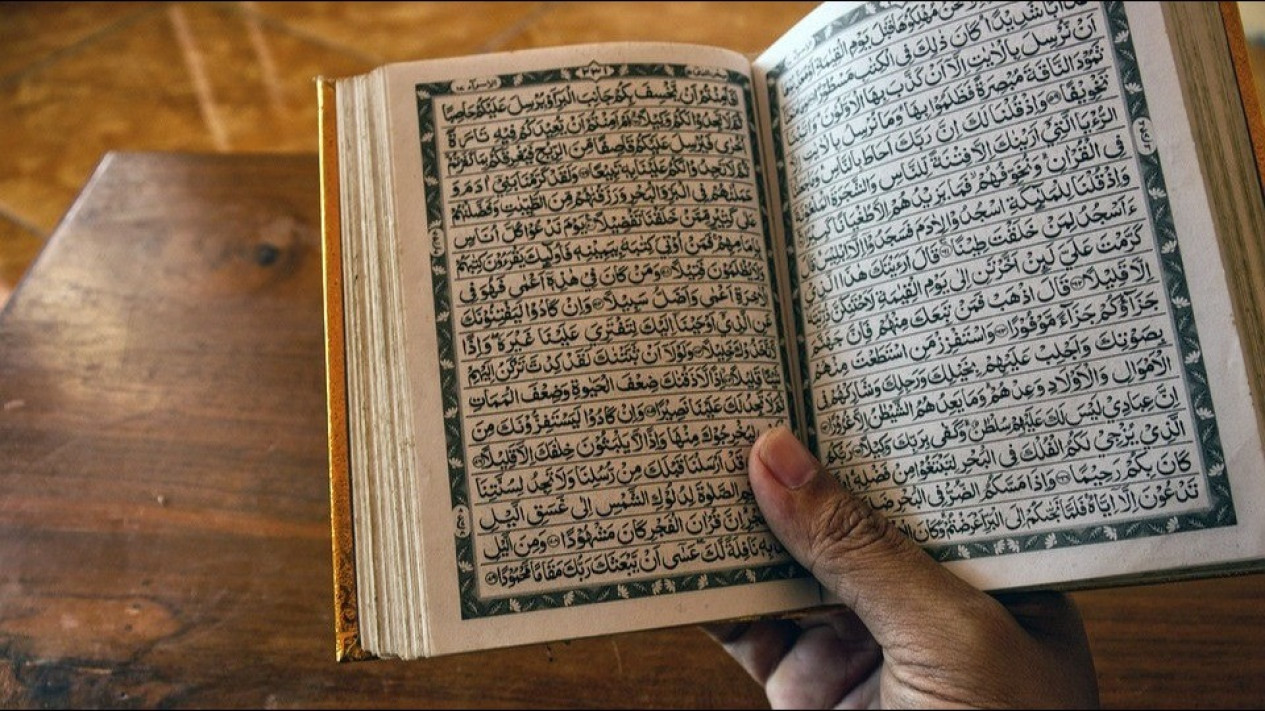 نَحْنُ مُهْلِكُوْهَا قَبْلَ يَوْمِ الْقِيٰمَةِ اَوْ
عَذَابًا شَدِيْدًا كَانَ ذٰلِكَ فِى الْكِتٰبِ مَسْطُوْرًا
اَنْ نُّرْسِلَ بِالْاٰيٰتِ اِلَّا اَنْ كَذَّبَ بِهَا الْاَوَّلُوْنَ وَاٰتَيْنَا
ثَمُوْدَ النَّاقَةَ مُبْصِرَةً فَظَلَمُوْا بِهَا وَمَا نُرْسِلُ بِالْاٰيٰتِ اِلَّا
تَخْوِيْفًا ۝ وَاِذْ قُلْنَا لَكَ اِنَّ رَبَّكَ اَحَاطَ بِالنَّاسِ وَمَا جَعَلْنَا
الرُّءْيَا الَّتِيْٓ اَرَيْنٰكَ اِلَّا فِتْنَةً لِّلنَّاسِ وَالشَّجَرَةَ الْمَلْعُوْنَةَ
فِى الْقُرْاٰنِ وَنُخَوِّفُهُمْ فَمَا يَزِيْدُهُمْ اِلَّا طُغْيَانًا كَبِيْرًا
وَاِذْ قُلْنَا لِلْمَلٰٓئِكَةِ اسْجُدُوْا لِاٰدَمَ فَسَجَدُوْٓا اِلَّآ اِبْلِيْسَ قَالَ
ءَاَسْجُدُ لِمَنْ خَلَقْتَ طِيْنًا ۝ قَالَ اَرَءَيْتَكَ هٰذَا الَّذِيْ
كَرَّمْتَ عَلَيَّ لَئِنْ اَخَّرْتَنِ اِلٰى يَوْمِ الْقِيٰمَةِ لَاَحْتَنِكَنَّ
اِلَّا قَلِيْلًا ۝ قَالَ اذْهَبْ فَمَنْ تَبِعَكَ مِنْهُمْ فَاِنَّ جَهَنَّمَ
جَزَآؤُكُمْ جَزَآءً مَّوْفُوْرًا ۝ وَاسْتَفْزِزْ مَنِ اسْتَطَعْتَ مِنْهُمْ
بِصَوْتِكَ وَاَجْلِبْ عَلَيْهِمْ بِخَيْلِكَ وَرَجِلِكَ وَشَارِكْهُمْ فِى
الْاَمْوَالِ وَالْاَوْلَادِ وَعِدْهُمْ وَمَا يَعِدُهُمُ الشَّيْطٰنُ اِلَّا غُرُوْرًا
اِنَّ عِبَادِيْ لَيْسَ لَكَ عَلَيْهِمْ سُلْطٰنٌ وَكَفٰى بِرَبِّكَ وَكِيْلًا ۝ رَبُّكُمُ
الَّذِيْ يُزْجِيْ لَكُمُ الْفُلْكَ فِى الْبَحْرِ لِتَبْتَغُوْا مِنْ فَضْلِهٖ
كَانَ بِكُمْ رَحِيْمًا ۝ وَاِذَا مَسَّكُمُ الضُّرُّ فِى الْبَحْرِ ضَلَّ
تَدْعُوْنَ اِلَّآ اِيَّاهُ فَلَمَّا نَجّٰىكُمْ اِلَى الْبَرِّ اَعْرَضْتُمْ وَكَانَ
اَفَاَمِنْتُمْ اَنْ يَّخْسِفَ بِكُمْ جَانِبَ الْبَرِّ اَوْ يُرْسِلَ عَلَيْكُمْ حَاصِبًا
ثُمَّ لَا تَجِدُوْا لَكُمْ وَكِيْلًا ۝ اَمْ اَمِنْتُمْ اَنْ يُّعِيْدَكُمْ فِيْهِ تَارَةً
اُخْرٰى فَيُرْسِلَ عَلَيْكُمْ قَاصِفًا مِّنَ الرِّيْحِ فَيُغْرِقَكُمْ بِمَا كَفَرْتُمْ
ثُمَّ لَا تَجِدُوْا لَكُمْ عَلَيْنَا بِهٖ تَبِيْعًا ۝ وَلَقَدْ كَرَّمْنَا بَنِيْٓ اٰدَمَ وَ
حَمَلْنٰهُمْ فِى الْبَرِّ وَالْبَحْرِ وَرَزَقْنٰهُمْ مِّنَ الطَّيِّبٰتِ وَفَضَّلْنٰهُمْ
عَلٰى كَثِيْرٍ مِّمَّنْ خَلَقْنَا تَفْضِيْلًا ۝ يَوْمَ نَدْعُوْا كُلَّ اُنَاسٍ
بِاِمَامِهِمْ فَمَنْ اُوْتِيَ كِتٰبَهٗ بِيَمِيْنِهٖ فَاُولٰٓئِكَ يَقْرَءُوْنَ كِتٰبَهُمْ
وَلَا يُظْلَمُوْنَ فَتِيْلًا ۝ وَمَنْ كَانَ فِيْ هٰذِهٖٓ اَعْمٰى فَهُوَ فِى
الْاٰخِرَةِ اَعْمٰى وَاَضَلُّ سَبِيْلًا ۝ وَاِنْ كَادُوْا لَيَفْتِنُوْنَكَ
عَنِ الَّذِيْٓ اَوْحَيْنَآ اِلَيْكَ لِتَفْتَرِيَ عَلَيْنَا غَيْرَهٗ وَاِذًا
لَّاتَّخَذُوْكَ خَلِيْلًا ۝ وَلَوْلَآ اَنْ ثَبَّتْنٰكَ لَقَدْ كِدْتَّ تَرْكَنُ اِلَيْهِمْ
شَيْئًا قَلِيْلًا ۝ اِذًا لَّاَذَقْنٰكَ ضِعْفَ الْحَيٰوةِ وَضِعْفَ الْمَمَاتِ
ثُمَّ لَا تَجِدُ لَكَ عَلَيْنَا نَصِيْرًا ۝ وَاِنْ كَادُوْا لَيَسْتَفِزُّوْنَكَ مِنَ
لِيُخْرِجُوْكَ مِنْهَا وَاِذًا لَّا يَلْبَثُوْنَ خِلٰفَكَ اِلَّا قَلِيْلًا ۝
قَدْ اَرْسَلْنَا قَبْلَكَ مِنْ رُّسُلِنَا وَلَا تَجِدُ لِسُنَّتِنَا
الصَّلٰوةَ لِدُلُوْكِ الشَّمْسِ اِلٰى غَسَقِ الَّيْلِ
اِنَّ قُرْاٰنَ الْفَجْرِ كَانَ مَشْهُوْدًا ۝ وَمِنَ الَّيْلِ
بِهٖ نَافِلَةً لَّكَ عَسٰٓى اَنْ يَّبْعَثَكَ رَبُّكَ مَقَامًا مَّحْمُوْدًا ۝